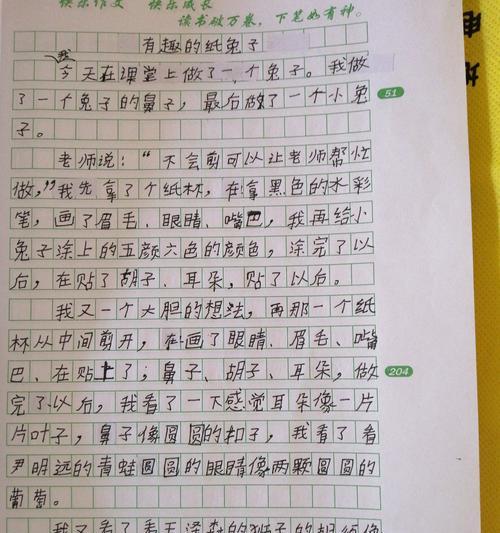 快乐作文 快乐成长
读书破万卷，下笔如有神。
有趣的纸兔子
我
今天在课堂上做了一个兔子。我做
了一个兔子的鼻子，最后做了一个小兔
子。
51
老师说：“不会剪可以让老师帮忙
做，”我先拿了个纸杯，在拿黑色的水彩
笔，画了眉毛、眼睛、嘴巴，我再给小
兔子涂上的五颜六色的颜色，涂完了以
后，在贴了胡子、耳朵，贴了以后。
我又一个大胆的想法，再那一个纸
杯从中间剪开，在画了眼睛、眉毛、嘴
巴、在贴上了；鼻子、胡子、耳朵，做
204
完了以后，我看了一下感觉耳朵像一片
片叶子，鼻子像圆圆的扣子，我看了看
尹明远的青蛙圆圆的眼睛像两颗圆圆的
葡萄。
我又看了看王泽森的狮子的胡须像